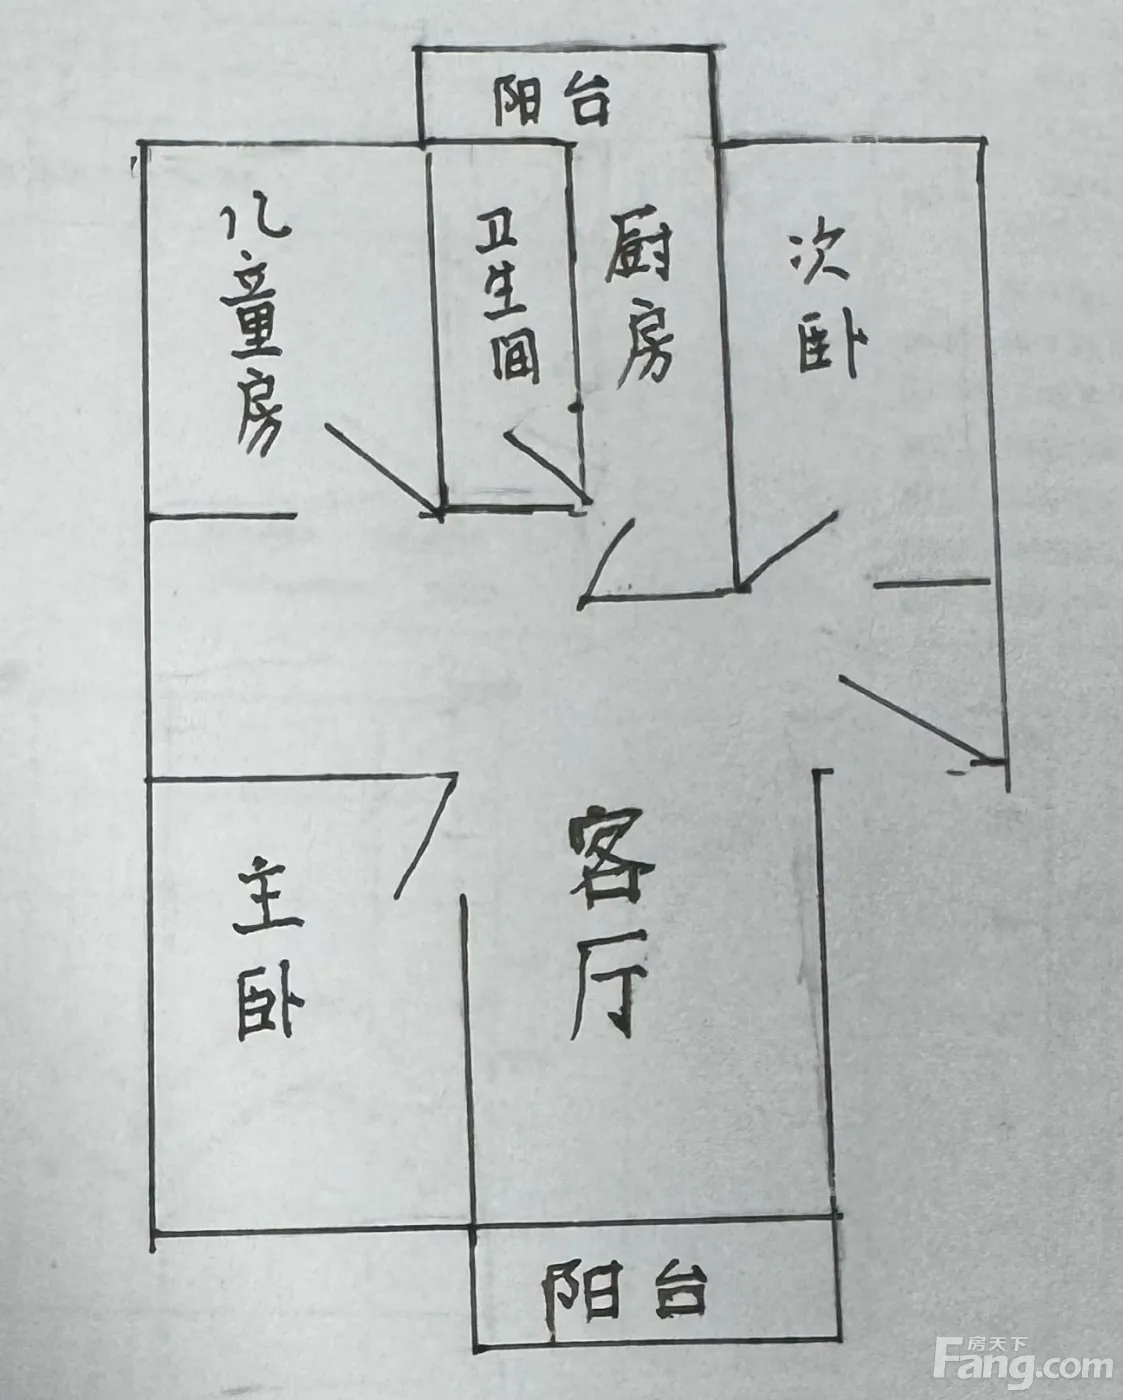 阳台
儿童房
卫生间
厨房
次卧
主卧
客厅
阳台
房天下
Fang.com